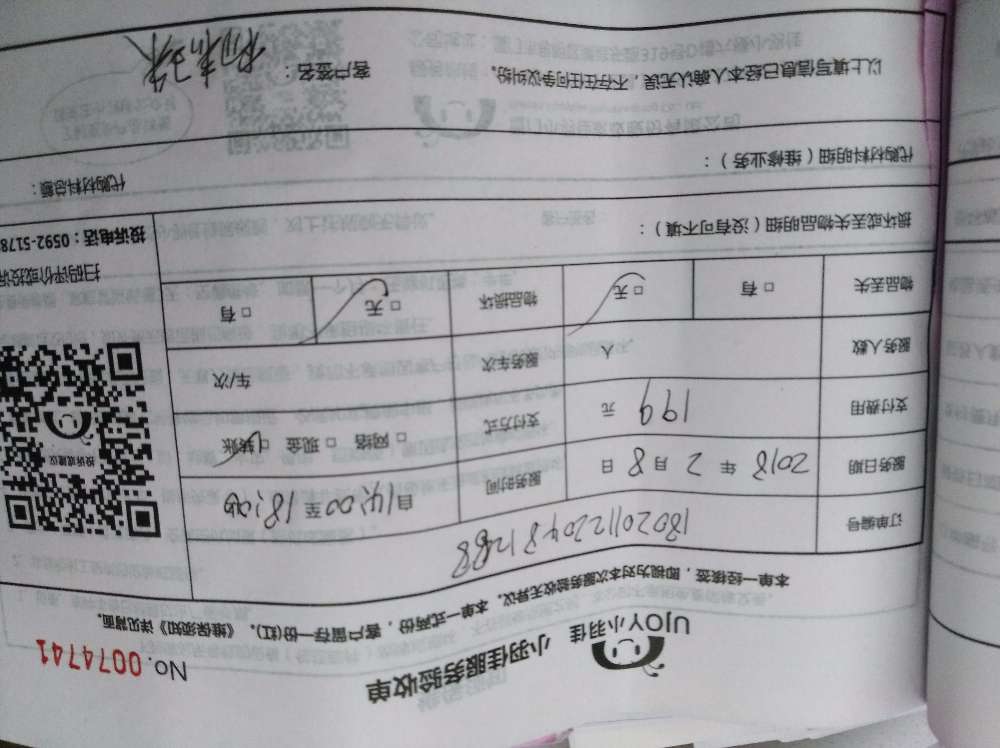 UJOY小羽佳
小羽佳服务验收单
No. 0074741
本单一经接签，即视为对本次服务验收无异议。本单一式两份，客户留存一份(红)。《维保须知》详见背面。
订单编号
服务日期 2018 年 2 月 8 日 服务时间 自14:00至18:00
支付费用 199 元 支付方式 □ 网络 □ 现金 □ 转账
服务人数 人 服务车次 车/次
物品丢失 □ 有 □ 无 物品损坏 □ 无 □ 有
投诉或建议
扫码评价或投诉
投诉电话：0592-5178
损坏或丢失物品明细（没有可不填）：
代购材料明细（维修业务）： 代购材料总额：
以上填写信息已经本人确认无误，不存在任何争议纠纷。 客户签名：